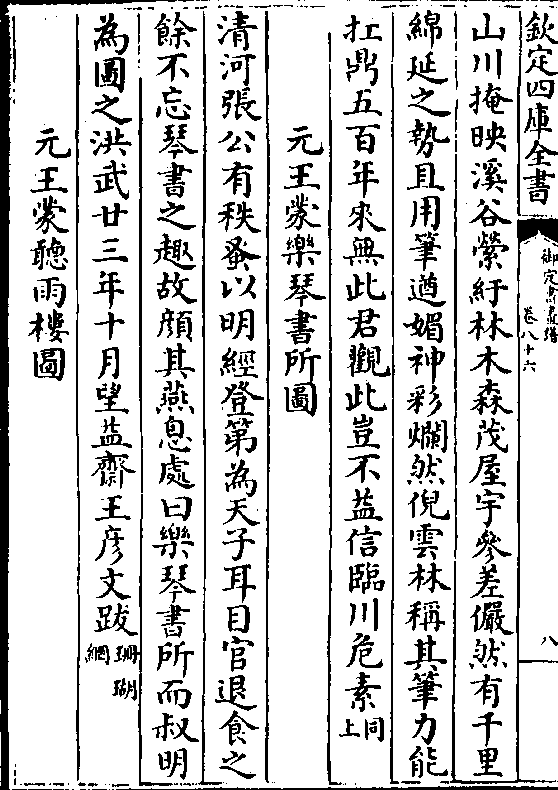 欽定四庫全書
御定書畫譜
卷八十六
八
山川掩映溪谷縈紆林木森茂屋宇參差儼然有千里
綿延之勢且用筆遒媚神彩爛然倪雲林稱其筆力能
扛鼎五百年來無此君觀此豈不益信臨川危素同上
元王蒙樂琴書所圖
清河張公有秩蚤以明經登第為天子耳目官退食之
餘不忘琴書之趣故顔其燕息處曰樂琴書所而叔明
為圖之洪武廿三年十月望益齋王彦文跋珊瑚網
元王蒙聽雨樓圖